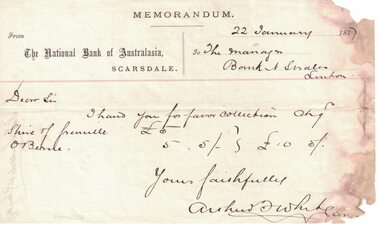 MEMORANDUM.
22 January 187
From
The National Bank of Australasia,
SCARSDALE.
To The Manager
Bank N S Wales
Linton
Dear Sir
I hand you for favor collection chq
Shire of Grenville £5
O'Beirne 5. 5/- } £10 5/-
Yours faithfully
Arthur White